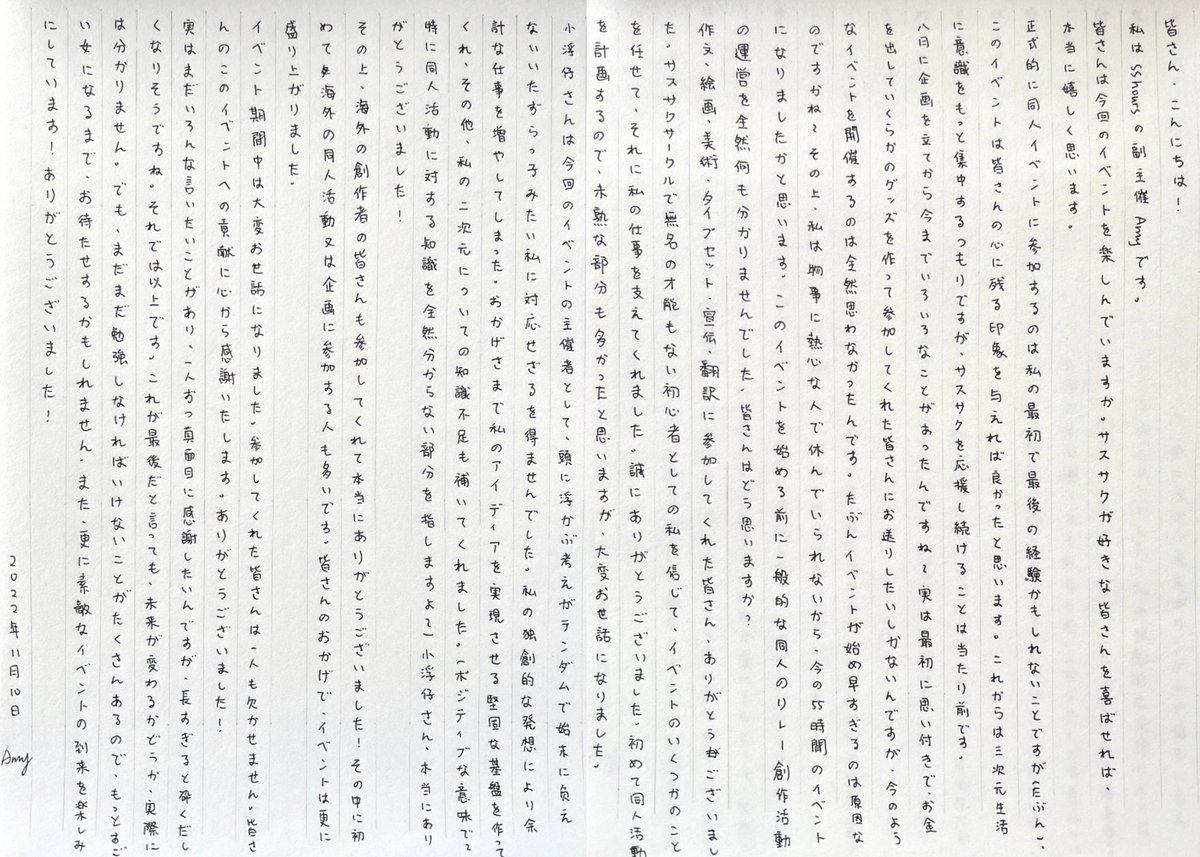 皆さん、こんにちは！
私はSShowsの副主催Amyです。
皆さんは今回のイベントを楽しんでいますか。サスサクが好きな皆さんを喜ばせれば、
本当に嬉しく思います。
正式的に同人イベントに参加するのは私の最初で最後の経験かもしれないことですが(たぶん)、
このイベントは皆さんの心に残る印象を与えれば良かったと思います。これからは三次元生活
に意識をもっと集中するつもりですが、サスサクを応援し続けることは当たり前です。
八月に企画を立てから今までいろいろなことがあったんですね〜実は最初に思い付きで、お金
を出していくらかのグッズを作って参加してくれた皆さんにお送りしたいしかないんですが、今のよう
なイベントを開催するのは全然思わなかったんです。たぶんイベントが始め早すぎるのは原因な
のですかね〜その上、私は物事に熱心な人で休んでいられないから、今の55時間のイベント
になりましたかと思います。このイベントを始める前に一般的な同人のリレー創作活動
の運営を全然何も分かりませんでした、皆さんはどう思いますか？
作文、絵画、美術、タイプセット、宣伝、翻訳に参加してくれた皆さん、ありがとうございまし
た。サスサクサークルで無名のオ能もない初心者としての私を信じて、イベントのいくつかのこと
を任せて、それに私の仕事を支えてくれました。誠にありがとうございました。初めて同人活動
を計画するので、未熟な部分も多かったと思いますが、大変お世話になりました。
小浮仔さんは今回のイベントの主催者として、頭に浮かぶ考えがランダムで始末に負え
ないいたずらっ子みたい私に対応せざるを得ませんでした。私の独創的な発想により余
計な仕事を増やしてしまった。おかげさまで私のアイディアを実現させる堅固な基盤を作って
くれ、その他、私の二次元についての知識不足も補いてくれました。(ポジティブな意味でて
特に同人活動に対する知識を全然分からない部分を指しますよ〜)小浮仔さん、本当にあり
がとうございました！
その上、海外の創作者の皆さんも参加してくれて本当にありがとうございました！その中に初
めて海外の同人活動又は企画に参加する人も多いです。皆さんのおかげで、イベントは更に
盛り上がりました。
イベント期間中は大変お世話になりました。参加してくれた皆さんは一人も欠かせません。皆さ
んのこのイベントへの貢献に心から感謝いたします。ありがとうございました！
実はまだいろんな言いたいことがあり、一人ずつ真面目に感謝したいんですが、長すぎると砕くだし
くなりそうですね。それでは以上です。これが最後だと言っても、未来が変わるかどうか、実際に
は分かりません。でも、まだまだ勉強しなければいけないことがたくさんあるので、もっとすご
い女になるまで、お待たせするかもしれません。また、更に素敵なイベントの到来を楽しみ
にしています！ありがとうございました！
2022年11月10日 Amy